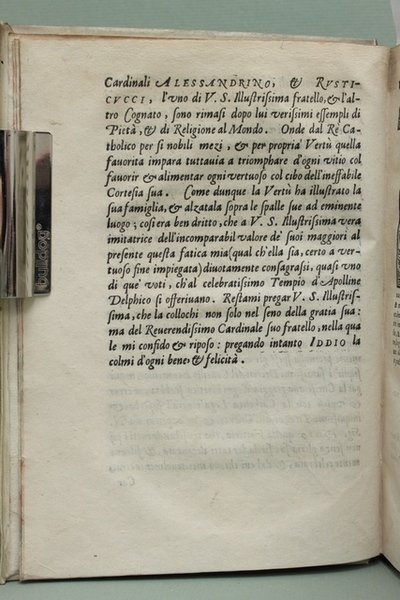 Cardinali ALESSANDRINO, & RUSTI-
CUCCI, l'uno di V. S. Illustrissima fratello, & l'al-
tro Cognato, sono rimasi dopo lui verissimi essempli di
Pietà, & di Religione al Mondo. Onde dal Re Ca-
tholico per si nobili mezi, & per propria Vertù quella
favorita impara tuttavia a triomphare d'ogni vitio col
favorir & alimentar ogni vertuoso col cibo dell'ineffabile
Cortesia sua. Come dunque la Vertù ha illustrato la
sua famiglia, & alzatala sopra le spalle sue ad eminente
luogo; cosi era ben dritto, che a V. S. Illustrissima vera
imitatrice dell'incomparabil valore de' suoi maggiori al
presente questa fatica mia (qual ch'ella sia, certo a ver-
tuoso fine impiegata) divotamente consagrassi, quasi uno
di que' voti, ch'al celebratissimo Tempio d'Apolline
Delphico si offerivano. Restami pregar V. S. Illustris-
sima, che la collochi non solo nel seno della gratia sua:
ma del Reverendissimo Cardinale suo fratello, nella qua
le mi confido & riposo: pregando intanto IDDIO la
colmi d'ogni bene, & felicità.
bulldog